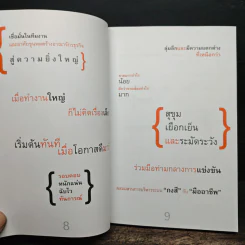 เชื่อมั่นในทีมงาน
สู่ความยิ่งใหญ่
เมื่อทำงานใหญ่
ก็ไม่คิดเรื่องเล็ก
เริ่มต้นทันที
เมื่อโอกาสดีมา
รอบคอบ
หนักแน่น
ฉับไว
ทันการณ์
8
น้อย
มาก
สุขุม
เยือกเย็น
และระมัดระวัง
ร่วมมือท่ามกลางการแข่งขัน
"กงสี" สู่ "มืออาชีพ"
9